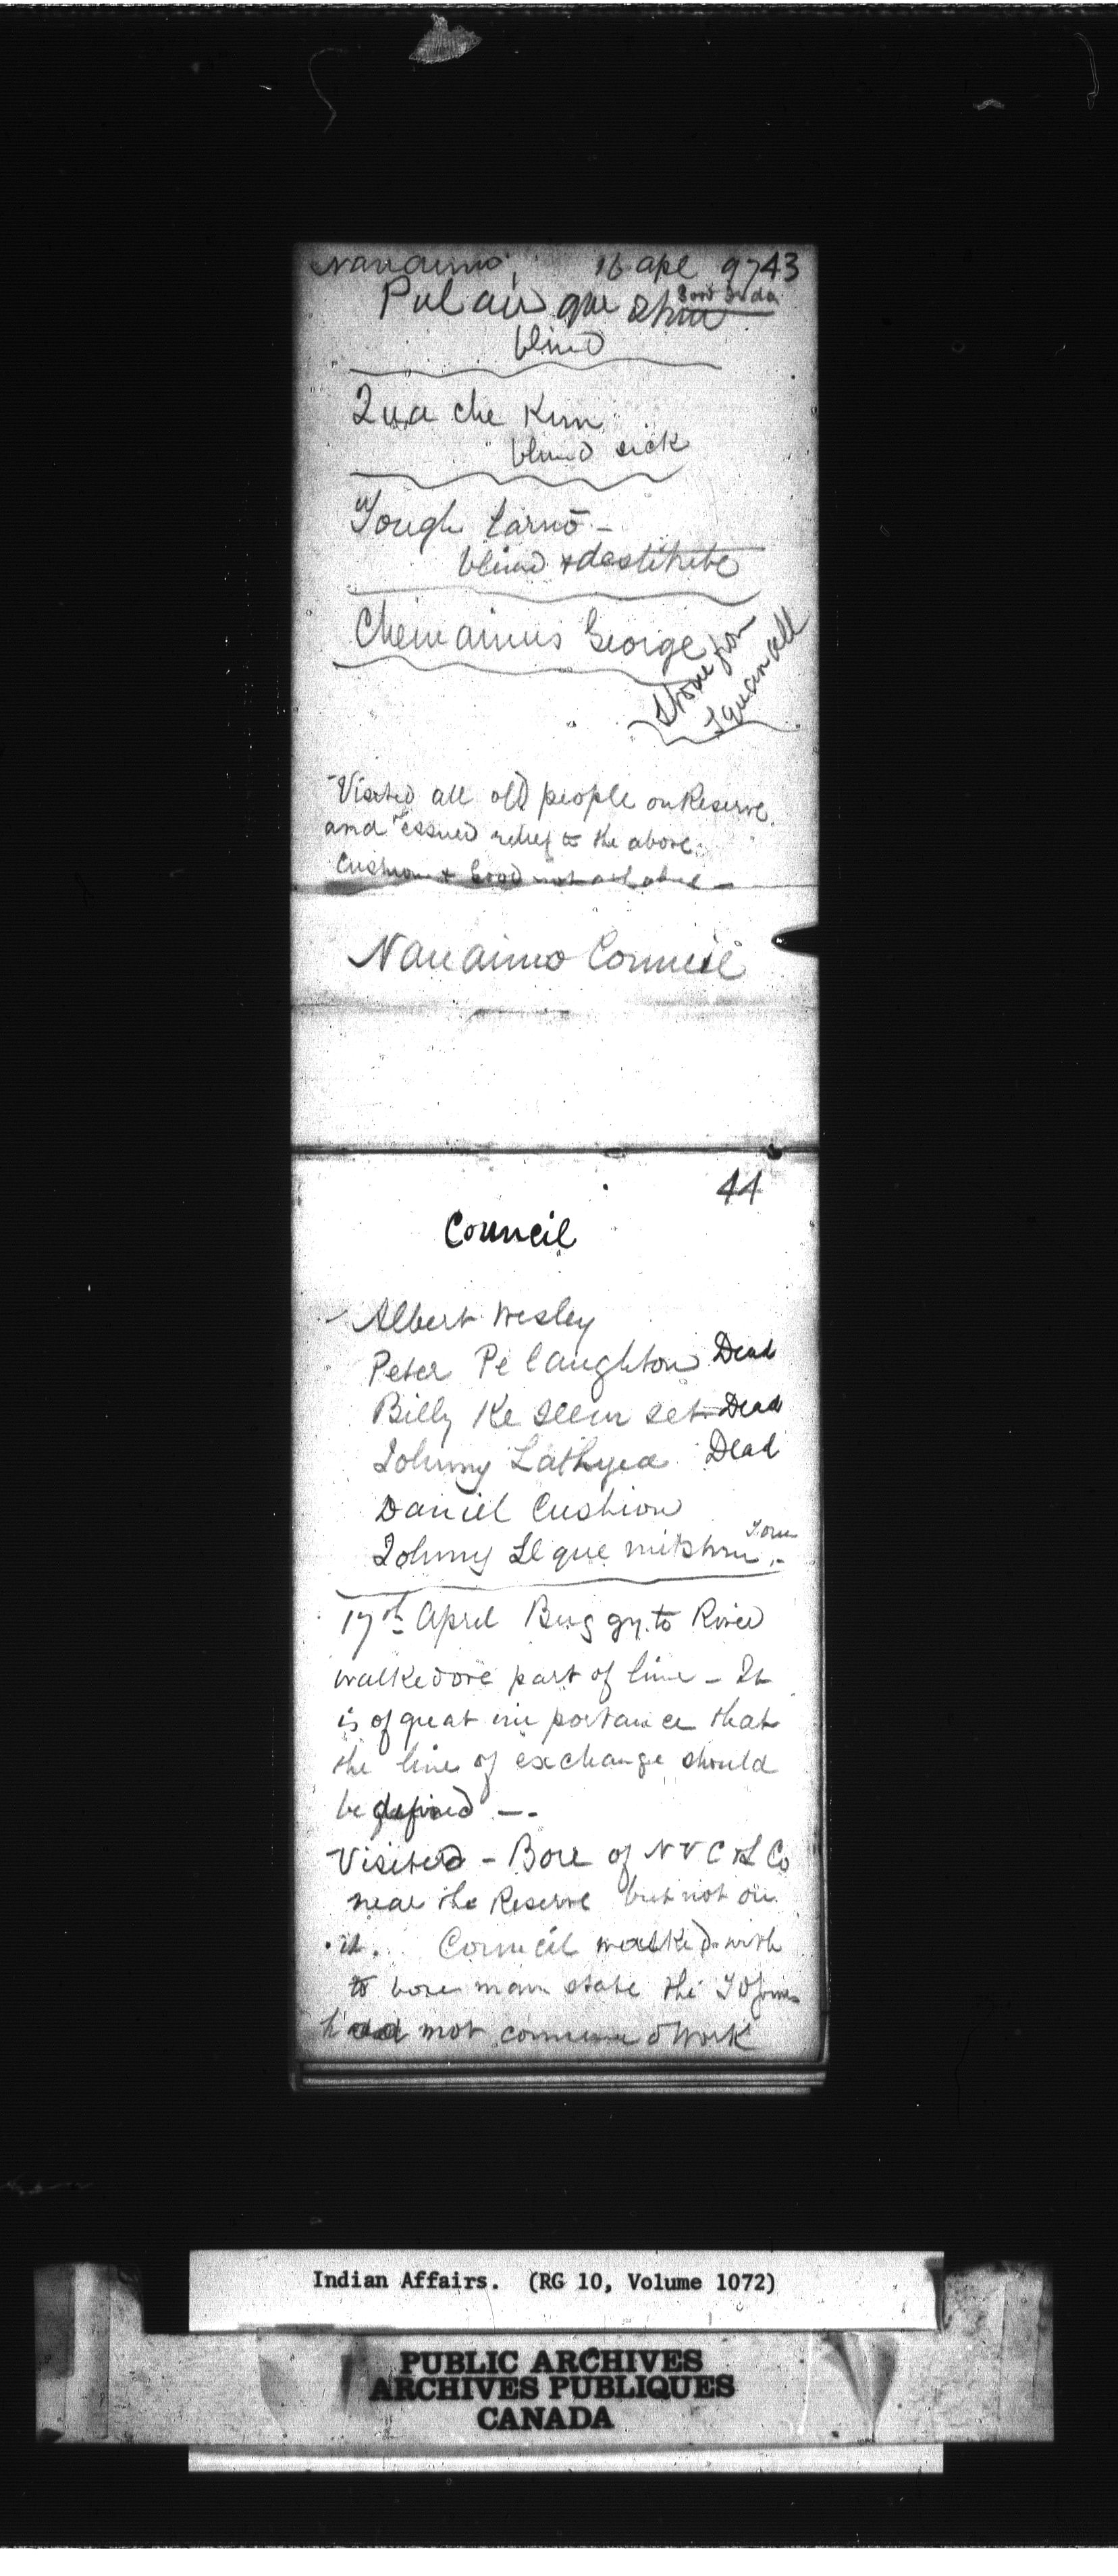 Nanaimo, 16 apl 97 43
Pul air que
blind
Qua che Kum
blind sick
Tough
blind & destitute
Chemainus George
Stone from
Visited all old people on Reserve.
and issued relief to the above.
Cushion & Good not
Nanaimo Council
44
Council
Albert Wesley
Peter Pe laughton Dead
Billy Ke seem set Dead
Johnny Dead
Daniel Cushion
Johnny
17th April Buggy to River
walked ore part of line - It
is of great importance that
the line of exchange should
be defined -
Visited - Bore of N V C & L Co
near the Reserve but not on
it. Council walked with
to bore man state the
had not commenced work
Indian Affairs. (RG 10, Volume 1072)
PUBLIC ARCHIVES
ARCHIVES PUBLIQUES
CANADA